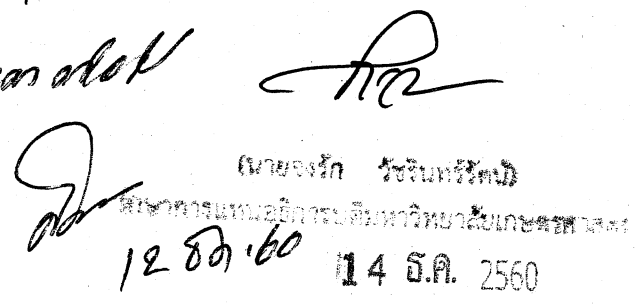 (นายจงรัก วัชรินทร์รัตน์)
รักษาการแทนอธิการบดีมหาวิทยาลัยเกษตรศาสตร์
12 ธค. 60
14 ธ.ค. 2560